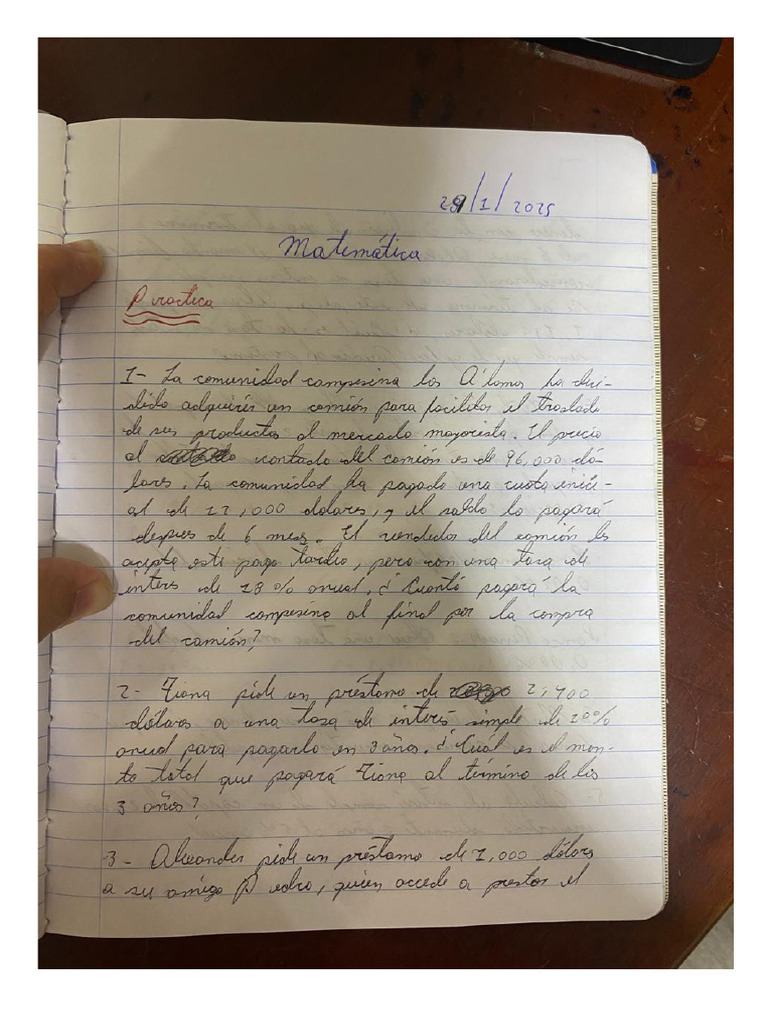 29/1/2025
Matemática
Practica
1- La comunidad campesina los Álamos ha deci-
dido adquirir un camión para facilitar el traslado
de sus productos al mercado mayorista. El precio
al contado del camión es de 96,000 dó-
lares. La comunidad ha pagado una cuota inici-
al de 12,000 dolares, y el saldo lo pagará
despues de 6 meses. El vendedor del camión les
acepta este pago tardio, pero con una tasa de
interes de 18% anual. ¿Cuantó pagará la
comunidad campesina al final por la compra
del camión?
2- Fiona pide un préstamo de 2,400
dólares a una tasa de interés simple de 20%
anual para pagarlo en 3 años. ¿Cual es el mon-
to total que pagará Fiona al término de los
3 años?
3- Alexander pide un préstamo de 1,000 dólares
a su amigo Pedro, quien accede a prestar el